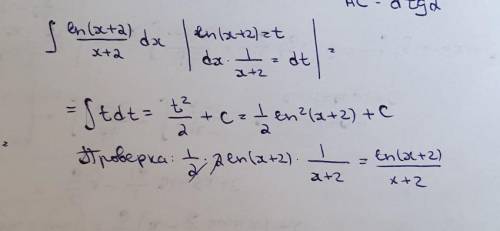 AC = d tg α
∫ ln(x+2)/(x+2) dx | ln(x+2)=t dx · 1/(x+2) = dt | =
= ∫ t dt = t²/2 + C = 1/2 ln²(x+2) + C
Проверка: 1/2 · 2 ln(x+2) · 1/(x+2) = ln(x+2)/(x+2)